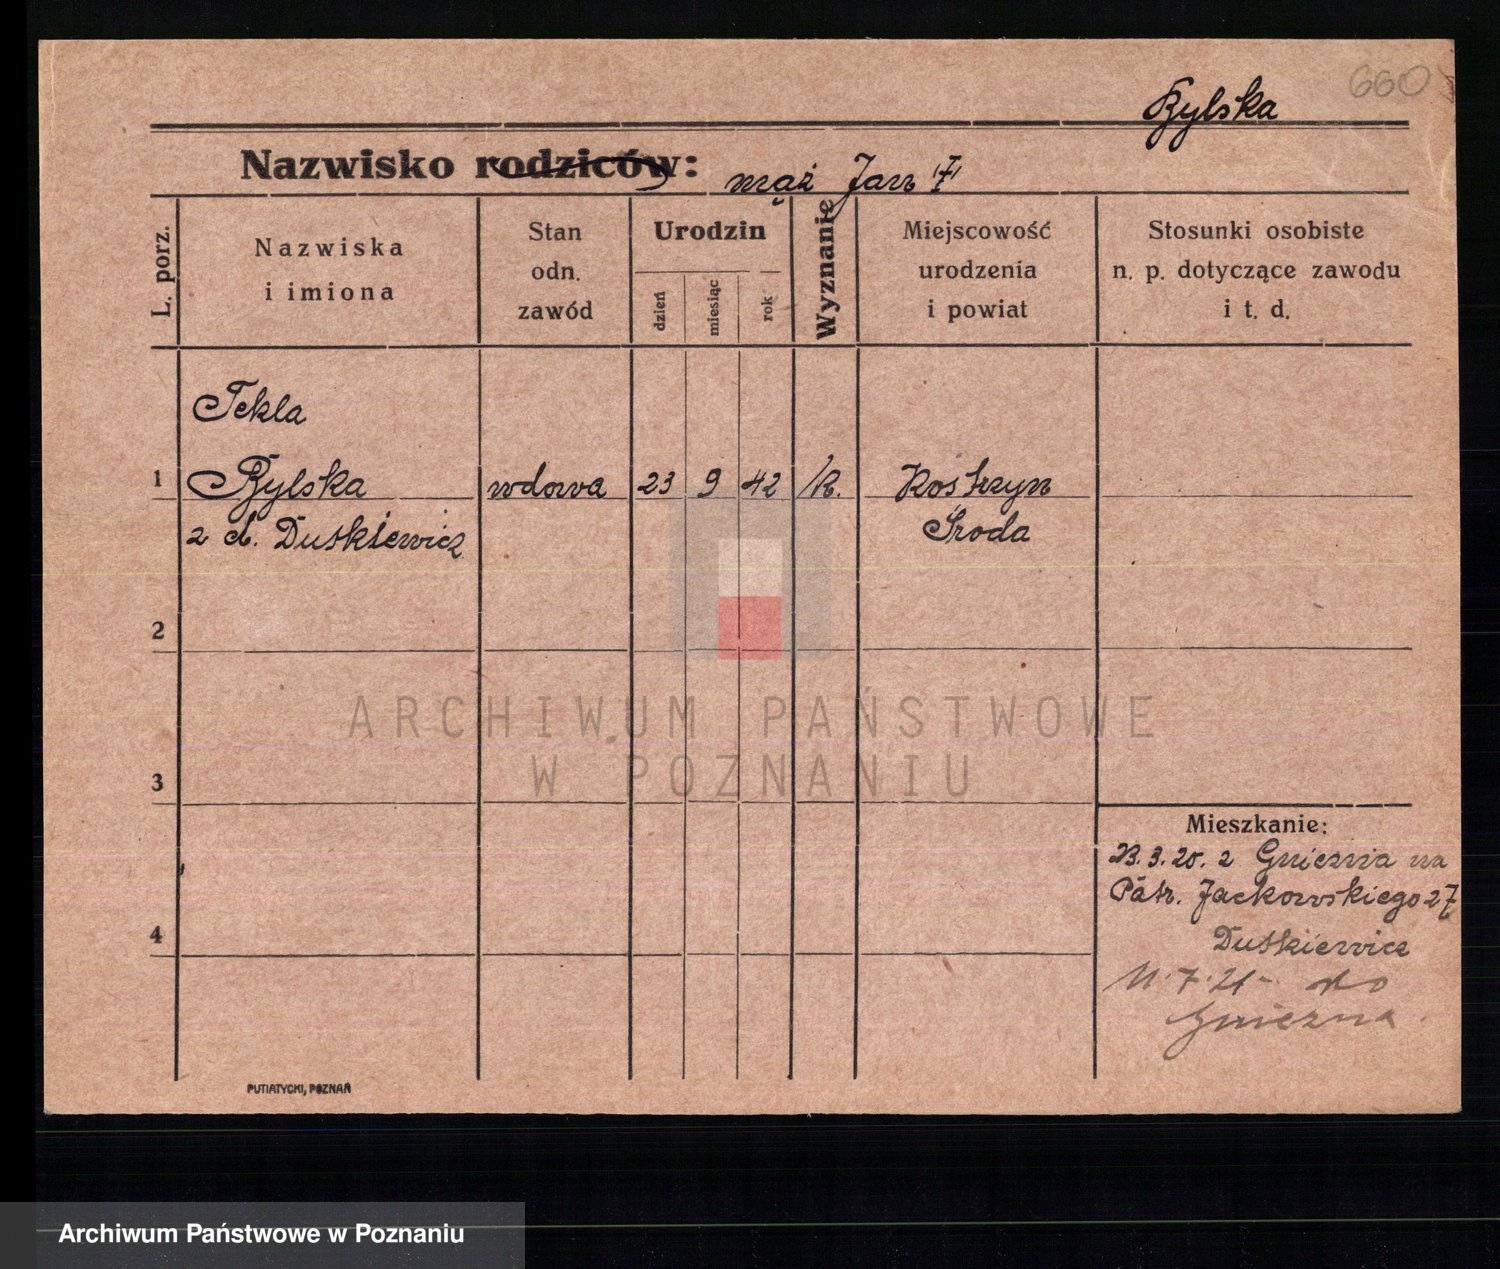 660
Rylska
Nazwisko rodziców: mąż Jan
L. porz.
Nazwiska
i imiona
Stan
odn.
zawód
Urodzin
dzień
miesiąc
rok
Wyznanie
Miejscowość
urodzenia
i powiat
Stosunki osobiste
n. p. dotyczące zawodu
i t. d.
Tekla
1 Rylska wdowa 23 9 42 /k. Kostrzyn
z d. Dutkiewicz Środa
2
3
4
Mieszkanie:
23.3.20. z Gniezna na
Patr. Jackowskiego 27
Dutkiewicz
11.7.21 - do
Gniezna
PUTIATYCKI, POZNAŃ
ARCHIWUM PAŃSTWOWE
W POZNANIU
Archiwum Państwowe w Poznaniu